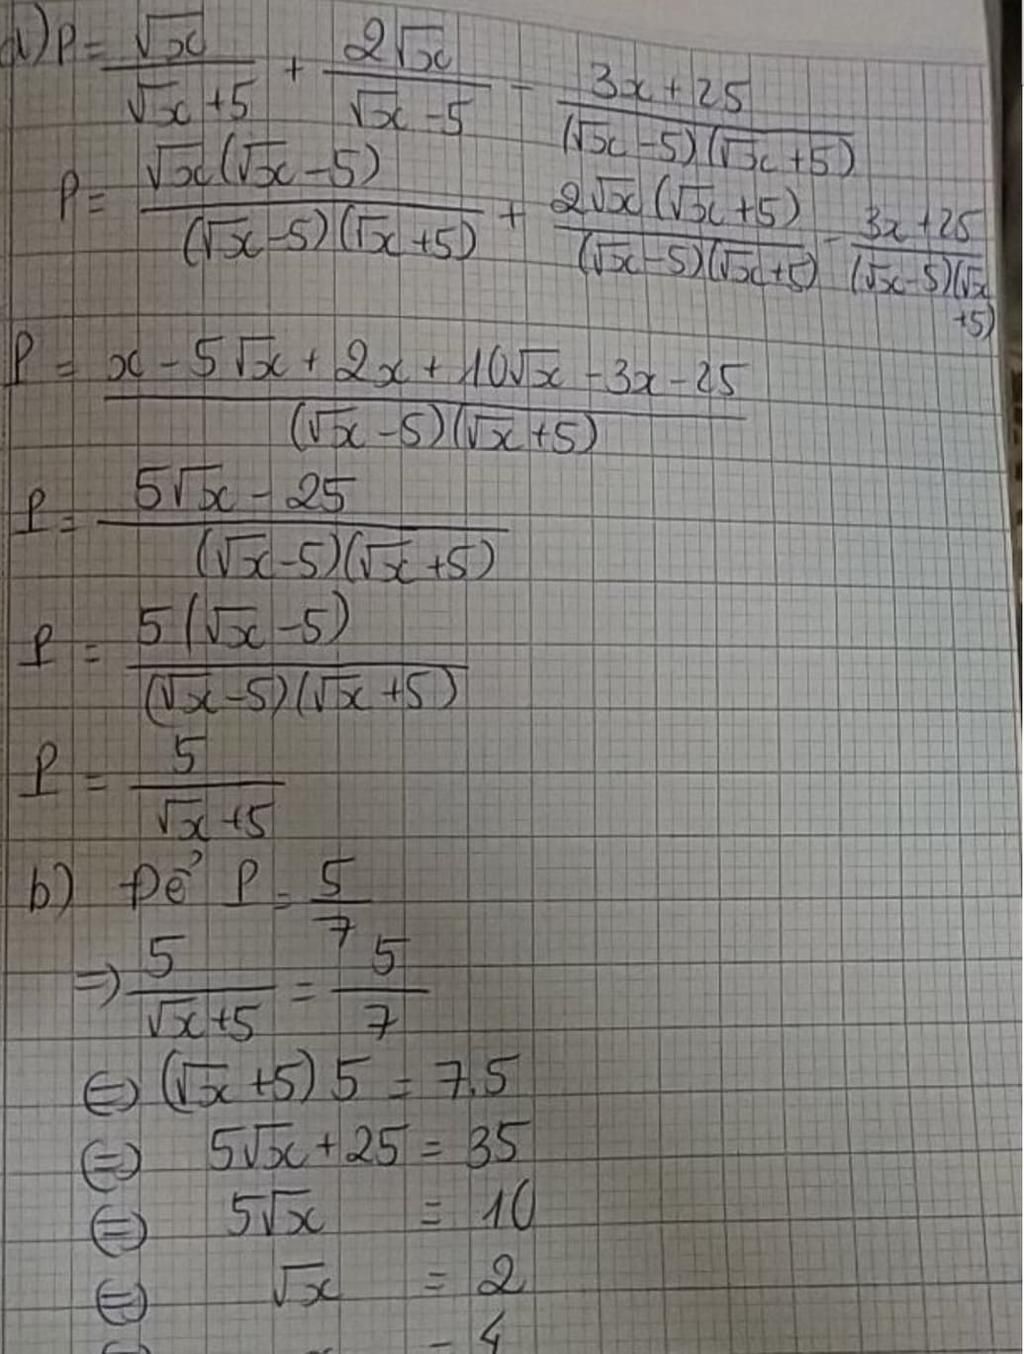 a) P = √x / (√x + 5) + 2√x / (√x - 5) - (3x + 25) / ((√x - 5)(√x + 5))
P = √x(√x - 5) / ((√x - 5)(√x + 5)) + 2√x(√x + 5) / ((√x - 5)(√x + 5)) - (3x + 25) / ((√x - 5)(√x + 5))
P = (x - 5√x + 2x + 10√x - 3x - 25) / ((√x - 5)(√x + 5))
P = (5√x - 25) / ((√x - 5)(√x + 5))
P = 5(√x - 5) / ((√x - 5)(√x + 5))
P = 5 / (√x + 5)
b) Để P = 5/7
=> 5 / (√x + 5) = 5/7
<=> (√x + 5) 5 = 7.5
<=> 5√x + 25 = 35
<=> 5√x = 10
<=> √x = 2
= 4